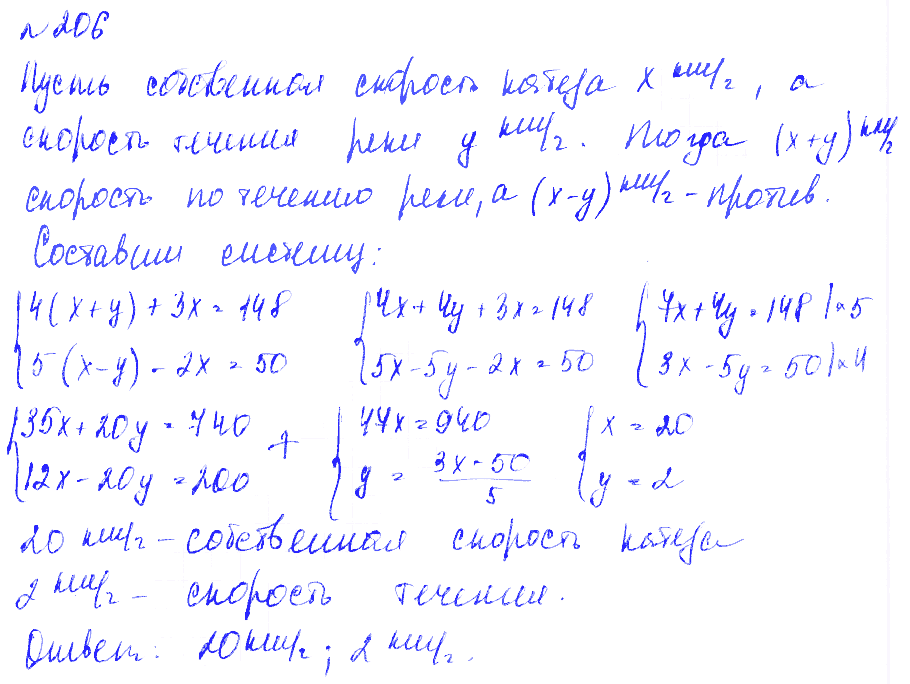 №206
Пусть собственная скорость катера x км/г, а
скорость течения реки y км/г. Тогда (x+y) км/г
скорость по течению реки, а (x-y) км/г - против.
Составим систему:
{4(x+y)+3x=148 {4x+4y+3x=148 {7x+4y=148 |×5
{5(x-y)-2x=50 {5x-5y-2x=50 {3x-5y=50 |×4
{35x+20y=740 + {47x=940 {x=20
{12x-20y=200 {y=(3x-50)/5 {y=2
20 км/г - собственная скорость катера
2 км/г - скорость течения.
Ответ: 20 км/г; 2 км/г.